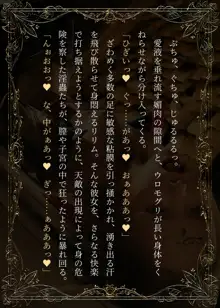 ぷちゅ、ぐちゅ、じゅるるるっ。
愛液を垂れ流す媚肉の隙間へと、ウロモグリが長い身体をく
ねらせながら分け入ってくる。
「ひぎぃっ♥　ぐっ……がぁっ♥　おぁああああっ♥」
ざわめく多数の足に敏感な粘膜を引っ掻かれ、湧き出る汗
を飛び散らせて身悶えるリリム。そんな彼女を、さらなる快楽
で打ち据えようとするかのように、天敵の出現によって身の危
険を察した淫蟲たちが、膣や子宮の中で狂ったように暴れ回る。
「んぉおおっ♥　な、中がぁぁっ♥　ぎっ……ぁああああっ♥」